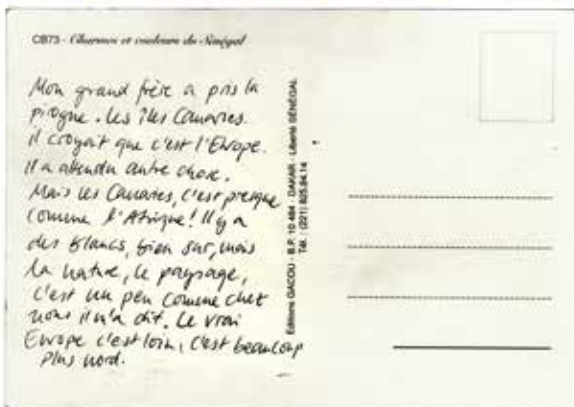 CB73 - Charmes et couleurs du Sénégal
Mon grand frère a pris la
pirogue. Les îles Canaries.
Il croyait que c'est l'Europe.
Il a attendu autre chose.
Mais les Canaries, c'est presque
comme l'Afrique! Il y a
des blancs, bien sur, mais
la nature, le paysage,
c'est un peu comme chez
nous il m'a dit. Le vrai
Europe c'est loin, c'est beaucoup
plus nord.
Editions GACOU - B.P. 10 484 - DAKAR - Liberté SÉNÉGAL
Tél. : (221) 825.84.14